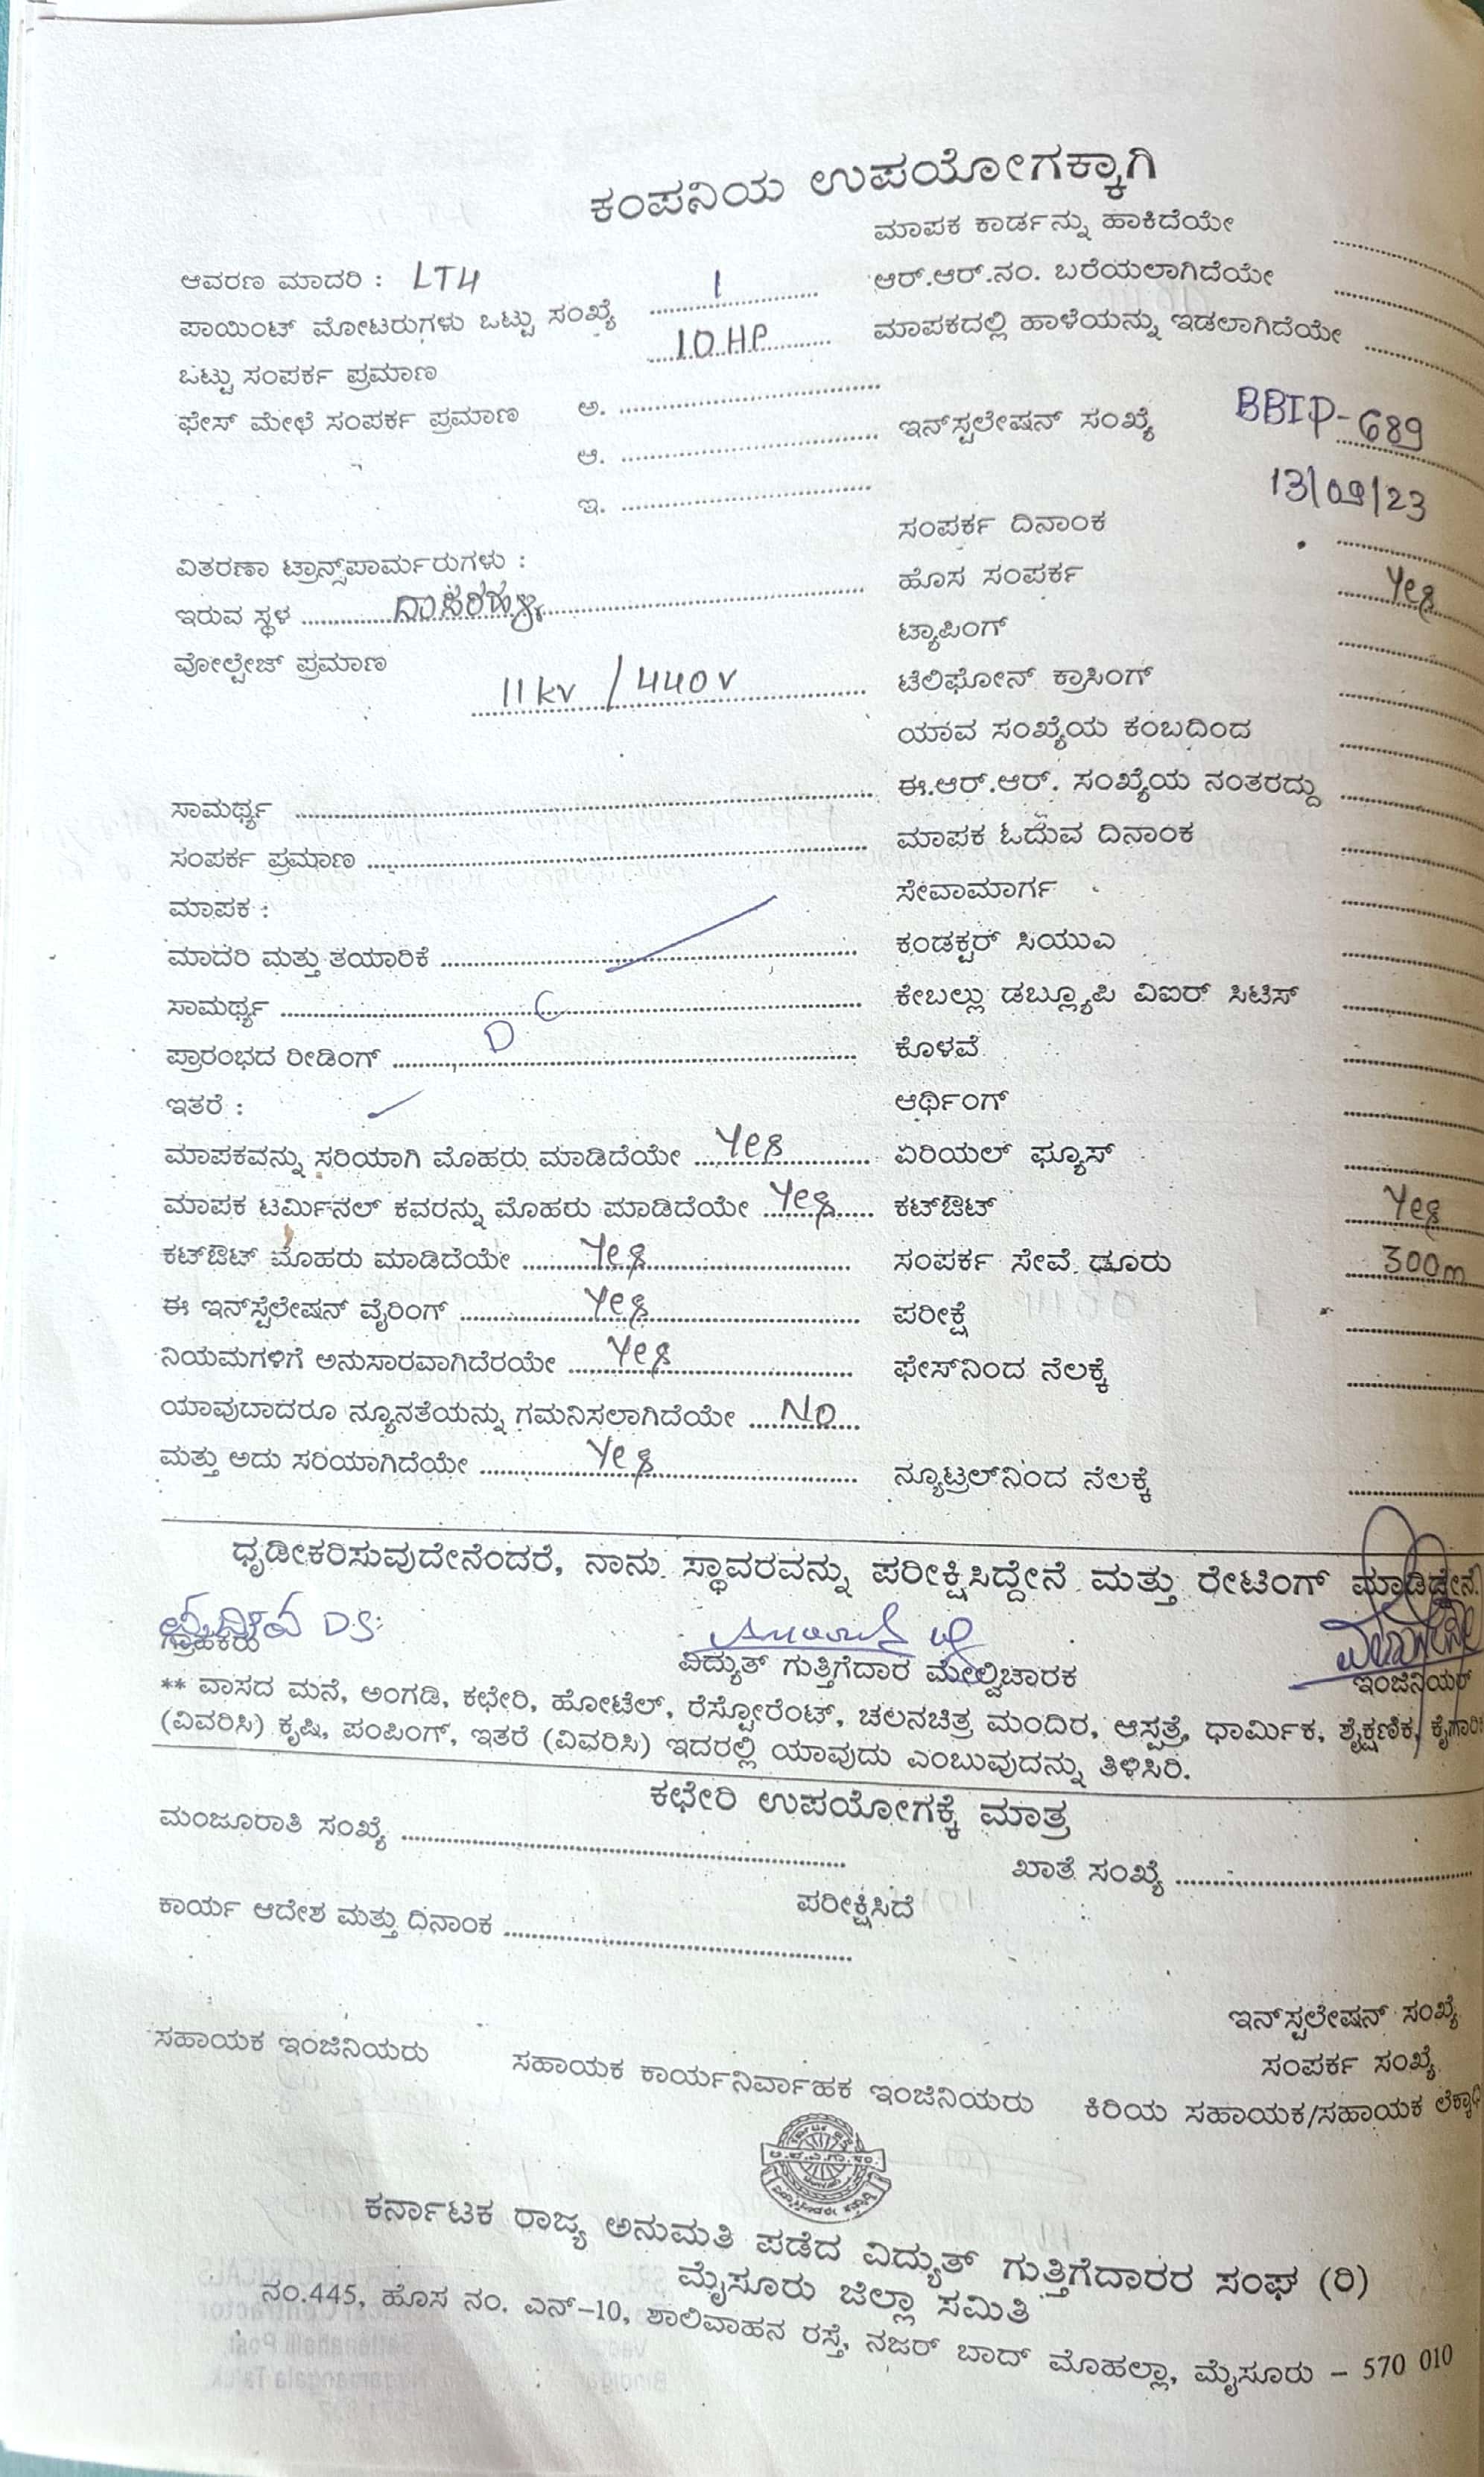 ಕಂಪನಿಯ ಉಪಯೋಗಕ್ಕಾಗಿ
ಆವರಣ ಮಾದರಿ : LT4
ಪಾಯಿಂಟ್ ಮೋಟರುಗಳು ಒಟ್ಟು ಸಂಖ್ಯೆ 1
ಒಟ್ಟು ಸಂಪರ್ಕ ಪ್ರಮಾಣ 10 HP
ಫೇಸ್ ಮೇಳೆ ಸಂಪರ್ಕ ಪ್ರಮಾಣ ಅ.
ಆ.
ಇ.
ವಿತರಣಾ ಟ್ರಾನ್ಸ್‌ಪಾರ್ಮರುಗಳು :
ಇರುವ ಸ್ಥಳ
ವೋಲ್ಟೇಜ್ ಪ್ರಮಾಣ 11 kv / 440 v
ಸಾಮರ್ಥ್ಯ
ಸಂಪರ್ಕ ಪ್ರಮಾಣ
ಮಾಪಕ :
ಮಾದರಿ ಮತ್ತು ತಯಾರಿಕೆ
ಸಾಮರ್ಥ್ಯ
ಪ್ರಾರಂಭದ ರೀಡಿಂಗ್
ಇತರೆ :
ಮಾಪಕವನ್ನು ಸರಿಯಾಗಿ ಮೊಹರು ಮಾಡಿದೆಯೇ Yes
ಮಾಪಕ ಟರ್ಮಿನಲ್ ಕವರನ್ನು ಮೊಹರು ಮಾಡಿದೆಯೇ Yes
ಕಟ್‌ಔಟ್ ಮೊಹರು ಮಾಡಿದೆಯೇ Yes
ಈ ಇನ್‌ಸ್ಟೆಲೇಷನ್ ವೈರಿಂಗ್ Yes
ನಿಯಮಗಳಿಗೆ ಅನುಸಾರವಾಗಿದೆರಯೇ Yes
ಯಾವುದಾದರೂ ನ್ಯೂನತೆಯನ್ನು ಗಮನಿಸಲಾಗಿದೆಯೇ No
ಮತ್ತು ಅದು ಸರಿಯಾಗಿದೆಯೇ Yes
ಮಾಪಕ ಕಾರ್ಡನ್ನು ಹಾಕಿದೆಯೇ
ಆರ್.ಆರ್.ನಂ. ಬರೆಯಲಾಗಿದೆಯೇ
ಮಾಪಕದಲ್ಲಿ ಹಾಳೆಯನ್ನು ಇಡಲಾಗಿದೆಯೇ
ಇನ್‌ಸ್ಟಲೇಷನ್ ಸಂಖ್ಯೆ BBIP-689
ಸಂಪರ್ಕ ದಿನಾಂಕ 13/09/23
ಹೊಸ ಸಂಪರ್ಕ Yes
ಟ್ಯಾಪಿಂಗ್
ಟೆಲಿಫೋನ್ ಕ್ರಾಸಿಂಗ್
ಯಾವ ಸಂಖ್ಯೆಯ ಕಂಬದಿಂದ
ಈ.ಆರ್.ಆರ್. ಸಂಖ್ಯೆಯ ನಂತರದ್ದು
ಮಾಪಕ ಓದುವ ದಿನಾಂಕ
ಸೇವಾಮಾರ್ಗ
ಕಂಡಕ್ಟರ್ ಸಿಯುಎ
ಕೇಬಲ್ಲು ಡಬ್ಲ್ಯೂಪಿ ವಿಐರ್ ಸಿಟಿಸ್
ಕೊಳವೆ
ಆರ್ಥಿಂಗ್
ಏರಿಯಲ್ ಫ್ಯೂಸ್
ಕಟ್‌ಔಟ್ Yes
ಸಂಪರ್ಕ ಸೇವೆ ಡೂರು 300m
ಪರೀಕ್ಷೆ
ಫೇಸ್‌ನಿಂದ ನೆಲಕ್ಕೆ
ನ್ಯೂಟ್ರಲ್‌ನಿಂದ ನೆಲಕ್ಕೆ
ಧೃಡೀಕರಿಸುವುದೇನೆಂದರೆ, ನಾನು ಸ್ಥಾವರವನ್ನು ಪರೀಕ್ಷಿಸಿದ್ದೇನೆ ಮತ್ತು ರೇಟಿಂಗ್ ಮಾಡಿದ್ದೇನೆ.
DS
ಗ್ರಾಹಕರು ವಿದ್ಯುತ್ ಗುತ್ತಿಗೆದಾರ ಮೇಲ್ವಿಚಾರಕ ಇಂಜಿನಿಯರ್
** ವಾಸದ ಮನೆ, ಅಂಗಡಿ, ಕಛೇರಿ, ಹೋಟೆಲ್, ರೆಸ್ಟೋರೆಂಟ್, ಚಲನಚಿತ್ರ ಮಂದಿರ, ಆಸ್ಪತ್ರೆ, ಧಾರ್ಮಿಕ, ಶೈಕ್ಷಣಿಕ,
(ವಿವರಿಸಿ) ಕೃಷಿ, ಪಂಪಿಂಗ್, ಇತರೆ (ವಿವರಿಸಿ) ಇದರಲ್ಲಿ ಯಾವುದು ಎಂಬುವುದನ್ನು ತಿಳಿಸಿರಿ.
ಕಛೇರಿ ಉಪಯೋಗಕ್ಕೆ ಮಾತ್ರ
ಮಂಜೂರಾತಿ ಸಂಖ್ಯೆ
ಖಾತೆ ಸಂಖ್ಯೆ
ಪರೀಕ್ಷಿಸಿದೆ
ಕಾರ್ಯ ಆದೇಶ ಮತ್ತು ದಿನಾಂಕ
ಇನ್‌ಸ್ಟಲೇಷನ್ ಸಂಖ್ಯೆ
ಸಂಪರ್ಕ ಸಂಖ್ಯೆ
ಸಹಾಯಕ ಇಂಜಿನಿಯರು ಸಹಾಯಕ ಕಾರ್ಯನಿರ್ವಾಹಕ ಇಂಜಿನಿಯರು ಕಿರಿಯ ಸಹಾಯಕ/ಸಹಾಯಕ
ಕರ್ನಾಟಕ ರಾಜ್ಯ ಅನುಮತಿ ಪಡೆದ ವಿದ್ಯುತ್ ಗುತ್ತಿಗೆದಾರರ ಸಂಘ (ರಿ)
ಮೈಸೂರು ಜಿಲ್ಲಾ ಸಮಿತಿ
ನಂ.445, ಹೊಸ ನಂ. ಎನ್-10, ಶಾಲಿವಾಹನ ರಸ್ತೆ, ನಜರ್ ಬಾದ್ ಮೊಹಲ್ಲಾ, ಮೈಸೂರು - 570 010